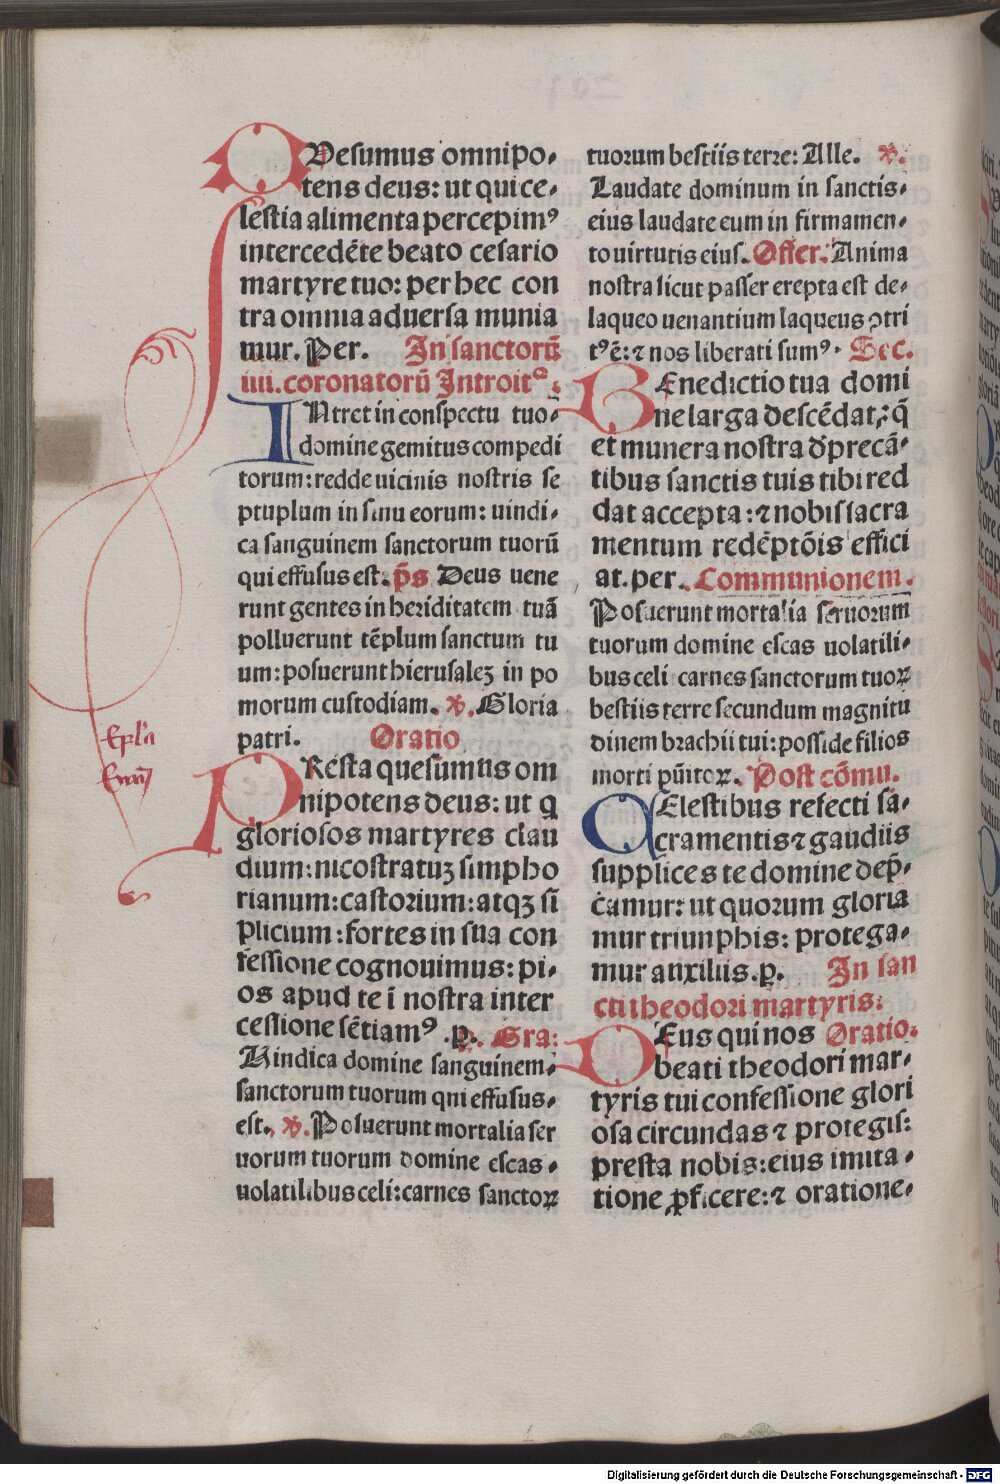 QVesumus omnipo-
tens deus: ut qui ce-
lestia alimenta percepimꝰ
intercedēte beato cesario
martyre tuo: per hec con
tra omnia aduersa munia
mur. Per. In sanctorū
iiii. coronatorū Introitꝰ:
INtret in conspectu tuo-
domine gemitus compedi
torum: redde uicinis nostris se
ptuplum in sinu eorum: uindi-
ca sanguinem sanctorum tuorū
qui effusus est. p̄s Deus uene
runt gentes in heriditatem tuā
polluerunt tēplum sanctum tu
um: posuerunt hierusaleꝫ in po
morum custodiam. ℣. Gloria
patri. Oratio
Ep̄la
PResta quesumus om
nipotens deus: ut q
gloriosos martyres clau
dium: nicostratuꝫ simpho
rianum: castorium: atqꝫ si
plicium: fortes in sua con
fessione cognouimus: pi-
os apud te ī nostra inter
cessione sētiamꝰ. p. Gra:
Uindica domine sanguinem-
sanctorum tuorum qui effusus-
est. ℣. Posuerunt mortalia ser
uorum tuorum domine escas-
uolatilibus celi: carnes sanctoꝝ
tuorum bestiis terre: Alle. ℣.
Laudate dominum in sanctis-
eius laudate eum in firmamen-
to uirtutis eius. Offer. Anima
nostra sicut passer erepta est de-
laqueo uenantium laqueus ꝯtri
tꝰ ē: ⁊ nos liberati sumꝰ. Sec.
BEnedictio tua domi
ne larga descēdat: q̄
et munera nostra dp̄recā-
tibus sanctis tuis tibi red
dat accepta: ⁊ nobis sacra
mentum redēptōis effici
at. per. Communionem.
Posuerunt mortalia seruorum
tuorum domine escas uolatili-
bus celi carnes sanctorum tuoꝝ
bestiis terre secundum magnitu
dinem brachii tui: posside filios
morti pūitoꝝ. Post cōmu.
CElestibus refecti sa-
cramentis ⁊ gaudiis
supplices te domine dep̄-
camur: ut quorum gloria
mur triunphis: protega-
mur auxiliis. p. In san
cti theodori martyris:
DEus qui nos Oratio.
beati theodori mar-
tyris tui confessione glori
osa circundas ⁊ protegis:
presta nobis: eius imita-
tione ꝓficere: ⁊ oratione-
Digitalisierung gefördert durch die Deutsche Forschungsgemeinschaft - DFG